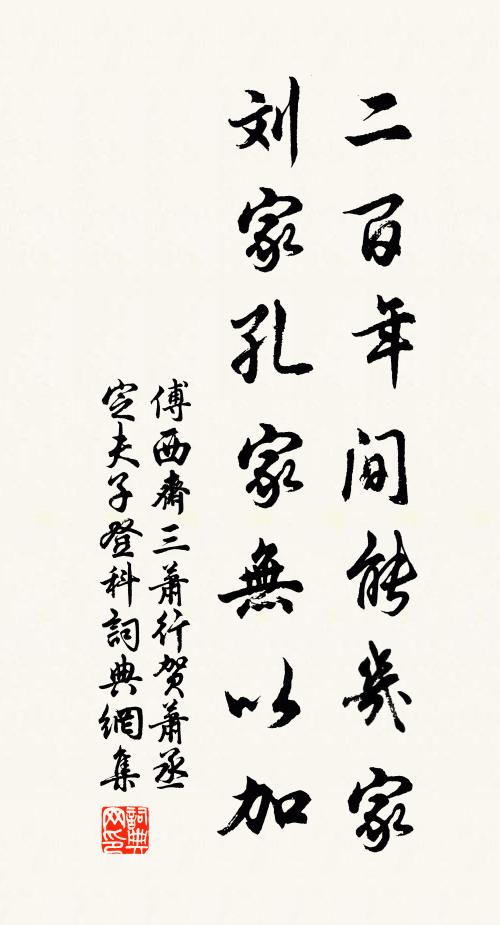 二百年间能几家
刘家孔家無以加
傅西齋三萧行贺萧丞
定夫子登科詞典網集
詞典網印